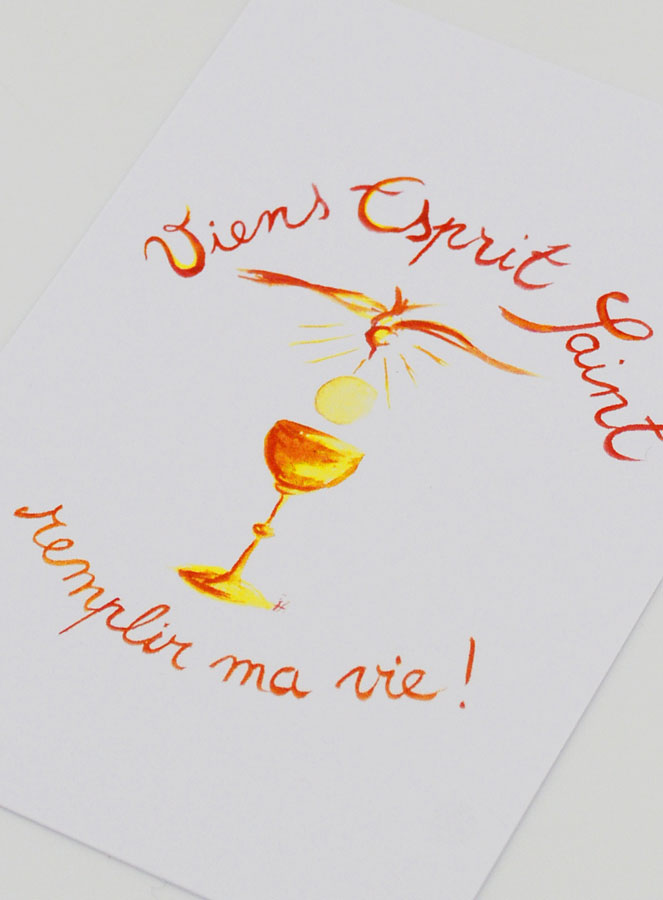 Viens Esprit Saint
remplir ma vie !